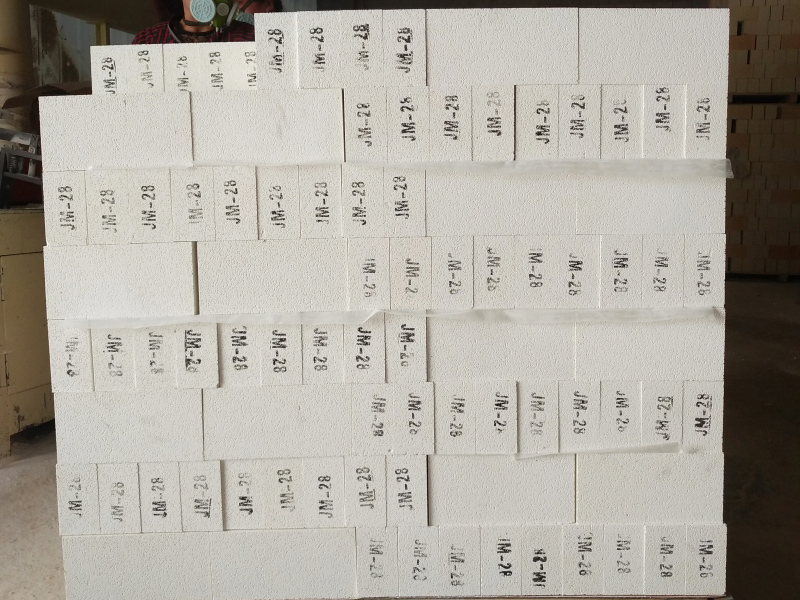 JM-28 JM-28 JM-28 JM-28 JM-28 JM-28 JM-28 JM-28 JM-28
JM-28 JM-28 JM-28 JM-28 JM-28 JM-28 JM-28 JM-28 JM-28
JM-28 JM-28 JM-28 JM-28 JM-28 JM-28 JM-28 JM-28 JM-28
JM-28 JM-2 JM-28 JM-28 JM-28 JM-28 JM-28 JM-28 JM-28
JM-28 JM-28 JM-28 JM-28 JM-28 JM-28 JM-28 JM-28 JM-28
JM-28 JM-28 JM-28 JM-28 JM-28 JM-28 JM-28 JM-28 JM-28
JM-28 JM-28 JM-28 JM-28 JM-28 JM-28 JM-28 JM-28 JM-28
JM-28 JM-28 JM-28 JM-28 JM-28 JM-28 JM-28 JM-28 JM-28